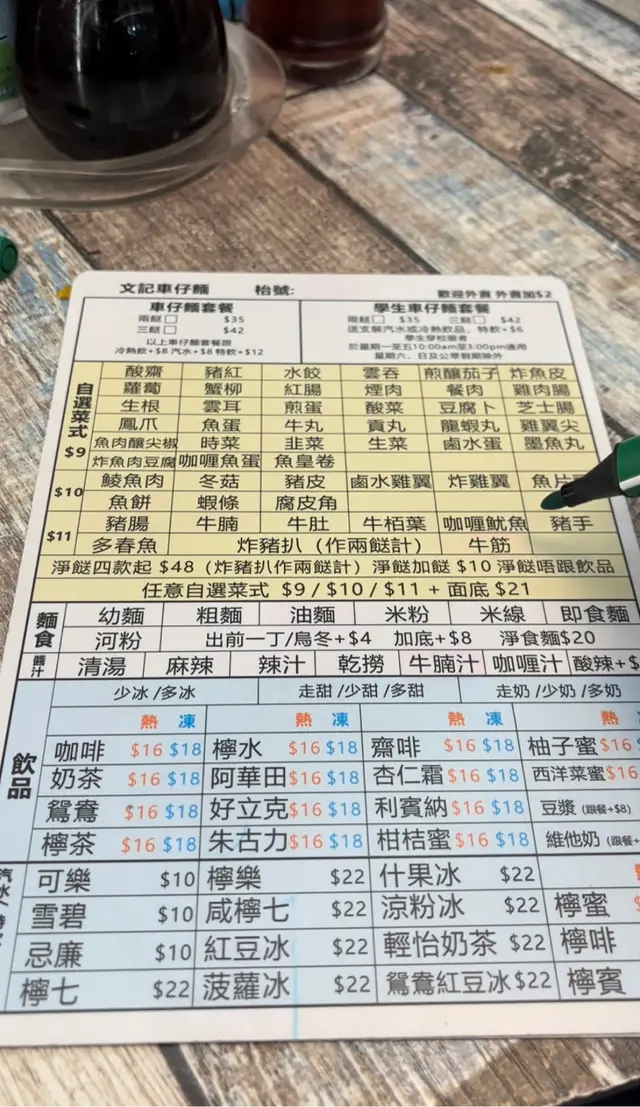 文記車仔麵 枱號: 歡迎外賣 外賣加$2
車仔麵套餐
兩餸 $35
三餸 $42
以上車仔麵套餐跟
冷熱飲+$6 汽水+$8 特飲+$12
學生車仔麵套餐
兩餸 $35 三餸 $42
送支裝汽水或冷熱飲品，特飲+$6
學生穿校服者
於星期一至五10:00am至3:00pm適用
星期六、日及公眾假期除外
自選菜式
$9
酸齋 豬紅 水餃 雲吞 煎釀茄子 炸魚皮
蘿蔔 蟹柳 紅腸 煙肉 餐肉 雞肉腸
生根 雲耳 煎蛋 酸菜 豆腐卜 芝士腸
鳳爪 魚蛋 牛丸 貢丸 龍蝦丸 雞翼尖
魚肉釀尖椒 時菜 韭菜 生菜 鹵水蛋 墨魚丸
炸魚肉豆腐 咖喱魚蛋 魚皇卷
$10
鯪魚肉 冬菇 豬皮 鹵水雞翼 炸雞翼 魚片
魚餅 蝦條 腐皮角
$11
豬腸 牛腩 牛肚 牛栢葉 咖喱魷魚 豬手
多春魚 炸豬扒（作兩餸計） 牛筋
淨餸四款起 $48 (炸豬扒作兩餸計) 淨餸加餸 $10 淨餸唔跟飲品
任意自選菜式 $9 / $10 / $11 + 面底 $21
麵食
幼麵 粗麵 油麵 米粉 米線 即食麵
河粉 出前一丁/烏冬+$4 加底+$8 淨食麵$20
醬汁
清湯 麻辣 辣汁 乾撈 牛腩汁 咖喱汁 酸辣+$
飲品
少冰 /多冰 走甜 /少甜 /多甜 走奶 /少奶 /多奶
熱 凍 熱 凍 熱 凍 熱
咖啡 $16 $18 檸水 $16 $18 齋啡 $16 $18 柚子蜜 $16
奶茶 $16 $18 阿華田 $16 $18 杏仁霜 $16 $18 西洋菜蜜 $16
鴛鴦 $16 $18 好立克 $16 $18 利賓納 $16 $18 豆漿 (跟餐+$8)
檸茶 $16 $18 朱古力 $16 $18 柑桔蜜 $16 $18 維他奶 (跟餐+
可樂 $10 檸樂 $22 什果冰 $22
雪碧 $10 咸檸七 $22 涼粉冰 $22 檸蜜
忌廉 $10 紅豆冰 $22 輕怡奶茶 $22 檸啡
檸七 $22 菠蘿冰 $22 鴛鴦紅豆冰 $22 檸賓